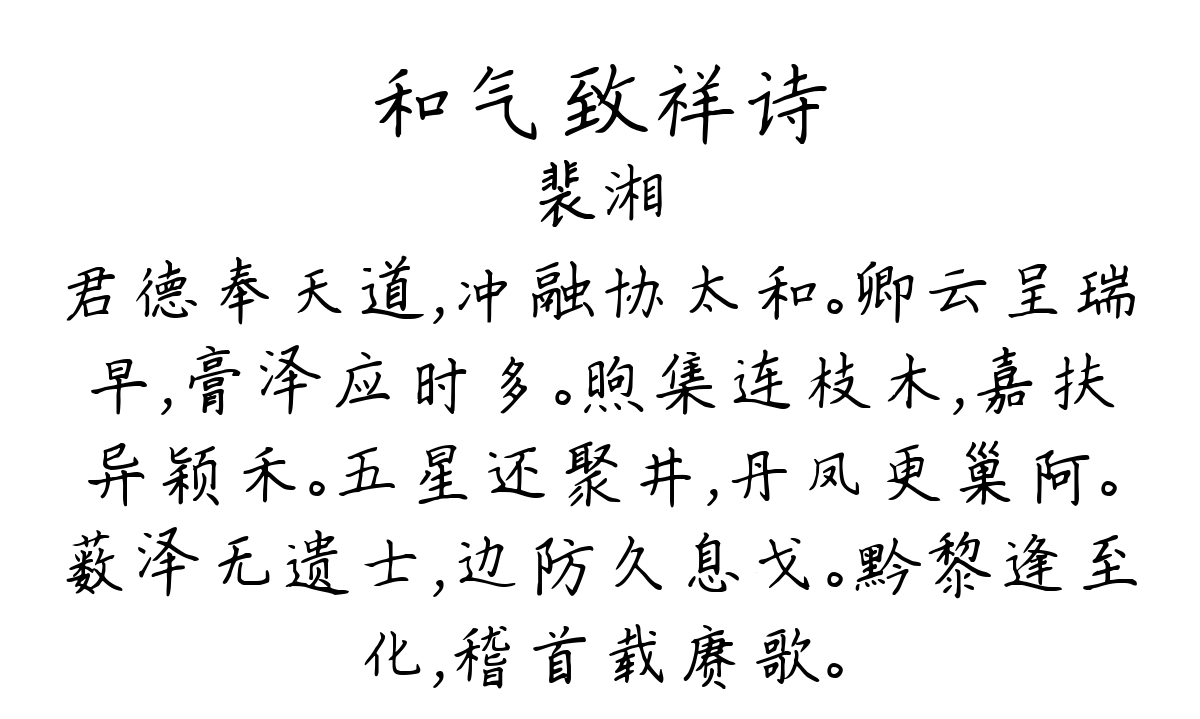 和气致祥诗
裴湘
君德奉天道,冲融协太和。卿云呈瑞
早,膏泽应时多。煦集连枝木,嘉扶
异颖禾。五星还聚井,丹凤更巢阿。
薮泽无遗士,边防久息戈。黔黎逢至
化,稽首载赓歌。